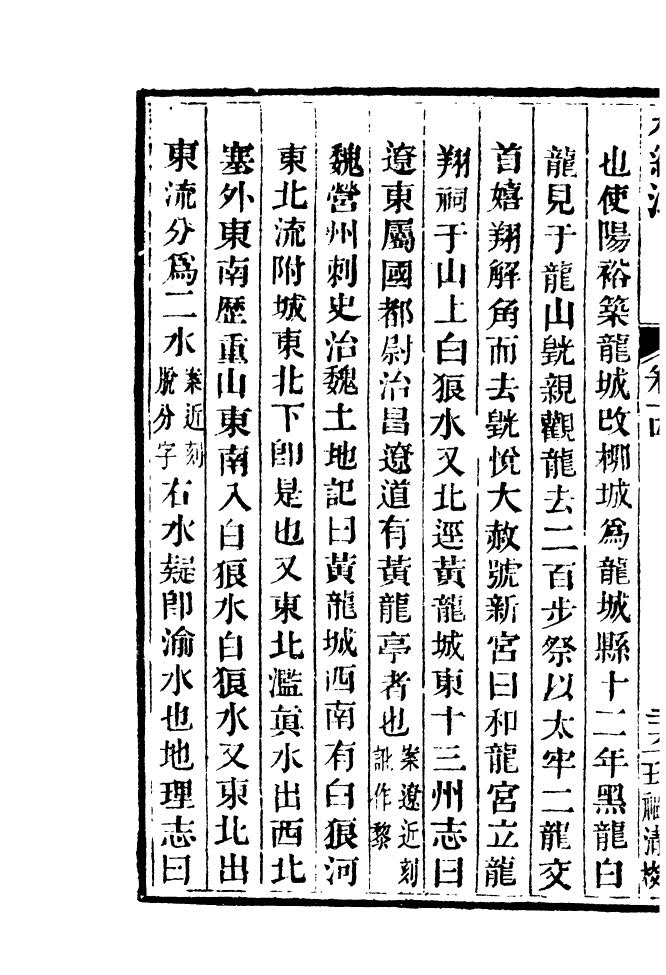 水經注 卷十四 王福清校
也使陽裕築龍城改栁城爲龍城縣十二年黑龍白
龍見于龍山皝親觀龍去二百步祭以太牢二龍交
首嬉翔解角而去皝悅大赦號新宮曰和龍宮立龍
翔祠于山上白狼水又北逕黃龍城東十三州志曰
遼東屬國都尉治昌遼道有黃龍亭者也案遼近刻訛作黎
魏營州刺史治魏土地記曰黃龍城西南有白狼河
東北流附城東北下卽是也又東北濫眞水出西北
塞外東南歷重山東南入白狼水白狼水又東北出
東流分爲二水案近刻脫分字右水疑卽渝水也地理志曰